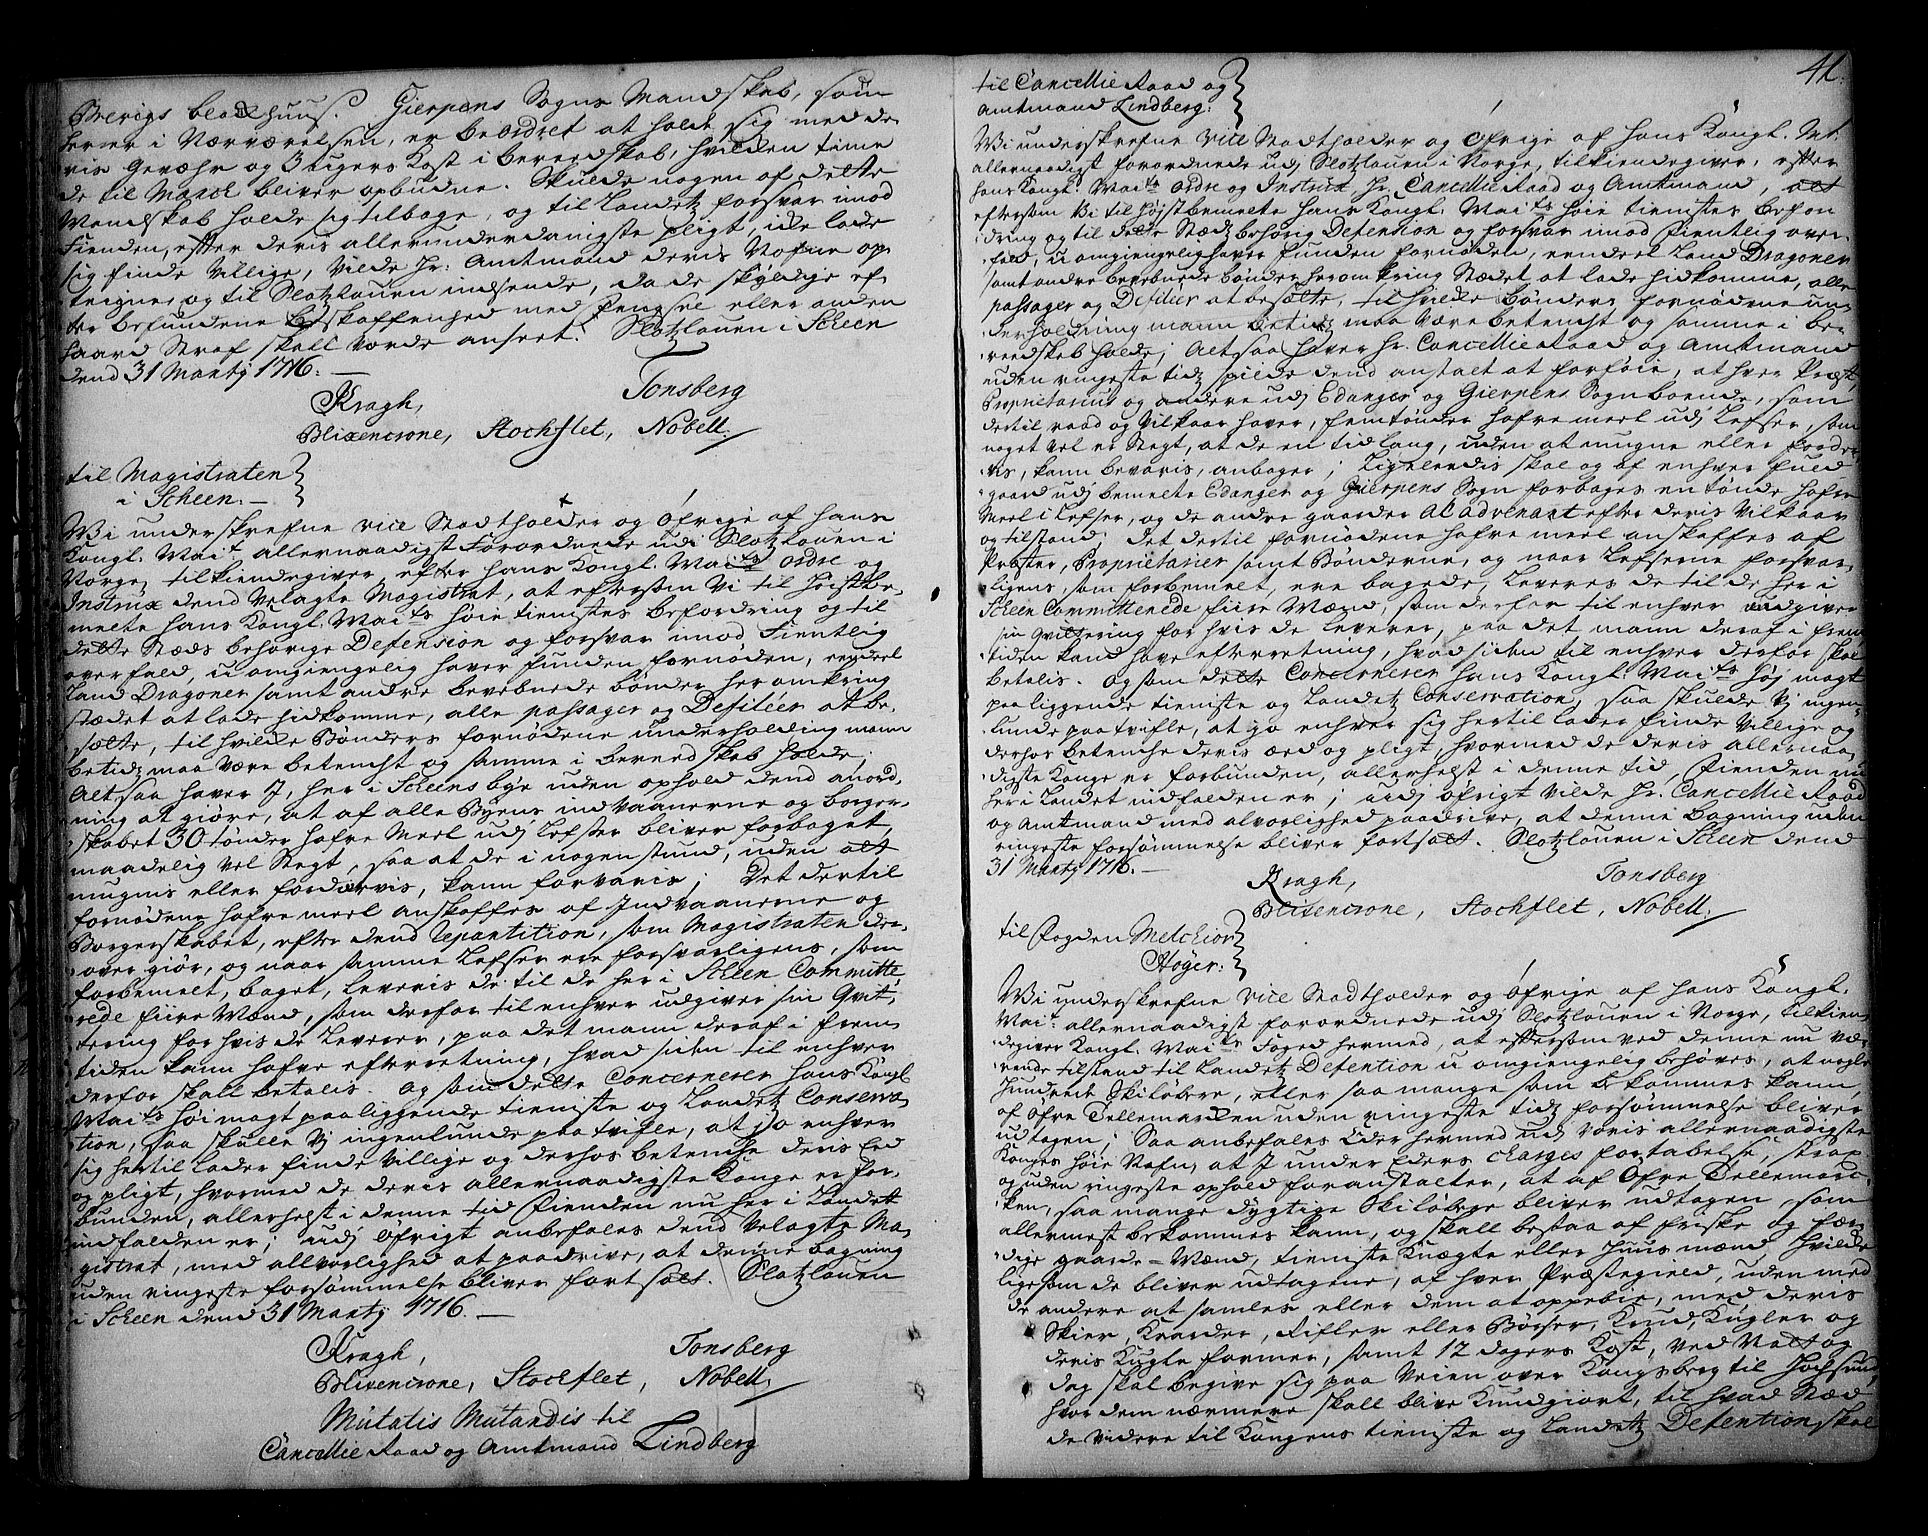 Brevigs blochhuus. Gierpens Sogns Mandskab, som
herer i Nærværelsen, er beordret at holde sig med de-
ris Gevæhr og 3 ugers Kost i beredskab, hvilken time
de til March bliver opbudne. Skulde nogen af dette
Mandskab holde sig tilbage, og til Landetz forsvar imod
Fienden, effter deris allerunderdanigste pligt, icke lade
sig finde Villige, Vilde Hr: Amtmand deris Nafne op-
teigne, og til Slotzlouen indsende, da de skyldige ef-
ter befundene beskaffenhed med fengsel eller anden
haard Straf skall vorde anseet. Slotzlouen i Scheen
dend 31 Martij 1716. —
Kragh, Tonsberg
Blixencrone, Stochflet, Nobell.
til Magistraten
i Scheen. —
Wi underskrefne vice Stadtholder og Øfrige af Hans
Kongl. Mait. allernaadigst Forordnede udi Slotzlouen i
Norge, tilkiendegiver, efter Hans Kongl. Maits ordre og
Instrux dend Velagte Magistrat, at eftersom Vi til Høistbe-
meelte Hans Kongl. Maits høie tienistes befordring og til
dette Stæds behørige Defension og forsvar imod Fientlig
overfald, uomgiengelig haver funden fornøden, eendeel
Land Dragoner samt andre bevebnede bønder her omkring
stædet at lade hidkomme, alle passager og Defiléer at be-
sætte, til hvilke Bønders fornødene underholding mann
betidz maa være betencht og samme i bereedskab holde;
Alt saa haver I, her i Scheens bye uden ophold dend anord-
ning at giøre, at af alle Byens indvaanerne og borger-
skabet 30 tønder hafre Meel udj Lefser bliver forbaget,
maadelig vel Stegt, saa at de i nogen stund, uden alt
mugnis eller fordervis, kann forvaris; Det dertil
fornødene hafre meel anskaffes af Indvaanerne og
Borgerskabet, efter dend Repartition, som Magistraten der-
over giør, og naar samme Lefser ere forsvarligens, som
forbemelt, baget, leveris de til de her i Scheen Committe-
rede fiire Mænd, som derfor til enhver udgiver sin Qvit-
tering for hvis de leverer, paa det mann deraf i frem-
tiden kann hafve efterretning, hvad siden til enhver
derfor skall betalis. Og som dette Concernerer Hans Kongl
Maits høi magt paaliggende tieniste og Landetz Conserva-
tion, saa skulle Vj ingenlunde paatvifle, at jo enhver
sig hertil lader finde Villige og derhos betenche deris Eed
og pligt, hvormed de deris allernaadigste Konge er for-
bunden, allerhelst i denne tid Fienden nu her i Landet
indfalden er; udj øfrigt anbefales dend Velagte Ma-
gistrat, med allvorlighed at paadrive, at denne bagning
uden ringeste forsømmelse bliver fortsat. Slotzlouen
i Scheen dend 31 Martij 1716. —
Kragh, Tonsberg
Blixencrone, Stochflet, Nobell.
Mutatis Mutandis til
Cancellie Raad og Amtmand Lindberg
41.
til Cancellie Raad og
Amtmand Lindberg:
Wi underskrefne vice Stadtholder og Øfrige af Hans Kongl. Mt.
allernaadigst forordnede udj Slotzlouen i Norge, tilkiendegiver, efter
hans Kongl. Maits ordre og Instrux Hr. Cancellie Raad og Amtmand, at
eftersom Vi til Højstbemeelte Hans Kongl. Maits høie tienistes befor-
dring og til dette Stædz behørig Defension og forsvar imod fientlig over-
fald, uomgiengelig haver funden fornøden, eendeel Land Dragoner
samt andre bevebnede bønder her omkring Stædet at lade hidkomme, alle
passager og Defiléer at besætte, til hvilke Bønders fornødene un-
derholdning mann betidz maa være betencht og samme i be-
reedskab holde; Alt saa haver Hr. Cancellie Raad og Amtmand
uden ringeste tidz spilde dend anstalt at forføie, at hver Præst
Proprietarius og andere udj Edanger og Gierpens Sogn boende, som
dertil raad og Vilkaar haver, fem tønder hafre meel udj Lefser, som
noget vel er Stegt, at de en tid lang, uden at mugne eller forder-
vis, kann bevaris, anbager; Ligeledis skal og af enhver fuld
gaard udj bemeelte Edanger og Gierpens Sogn forbages en tønde hafre
Meel i Lefser, og de andre gaarder al advenant efter deris Vilkaar
og tilstand; det dertil fornødene hafre meel anskaffes af
Præster, Proprietarier samt Bønderne, og naar Lefserne forsvar-
ligens, som forbemeelt, ere bagede, leveres de til de her i
Scheen Committerede fiire Mænd, som derfor til enhver udgiver
sin Qvittering for hvis de leverer, paa det mann deraf i frem
tiden kand have efterretning, hvad siden til enhver derfor skal
betalis. Og som dette Concernerer Hans Kongl. Maits høj magt
paaliggende tieniste og Landetz Conservation, saa skulde Vj ingen-
lunde paatvifle, at jo enhver sig hertil lader finde Villige og
derhos betenche deris æed og pligt, hvormed de deris allernaa-
digste Konge er forbunden, allerhelst i denne tid, Fienden nu
her i Landet indfalden er; udj øfrigt vilde Hr. Cancellie Raad
og Amtmand med alvorlighed paadrive, at denne bagning uden
ringeste forsømmelse bliver fortsat. Slotzlouen i Scheen dend
31 Martij 1716. —
Kragh, Tonsberg
Blixencrone, Stochflet, Nobell.
til Fogden Melchior
Høyer:
Wi underskrefne Vice Stadtholder og øfrige af Hans Kongl.
Mait. allernaadigst forordnede udj Slotzlouen i Norge, tilkien-
degiver Kongl. Maits Foged hermed, at eftersom ved denne nu væ-
rende tilstand til Landetz Defention uomgiengelig behøves, at nogle
Hundrede Skiløbere, eller saa mange som bekommes kann,
af Øfre Tellemarcken uden ringeste tidz forsømmelse bliver
udtagen; Saa anbefales Eder hermed udj Voris allernaadigste
Konges høie Nafn, at I under Eders charges fortabelse, strax
og uden ringeste ophold foranstalter, at af Øfre Tellemarc-
ken, saa mange dygtige Skiløbere bliver udtagen, som
allermest bekommes kann, og skall bestaa af friske og fær-
dige gaarde-Mænd, tieniste Knægte eller Huus mænd, hvilke
ligesom de bliver udtagene, af hver Præstegield, uden med
de andere at samles eller dem at oppebie, med deris
Skier, Krarder, Rifler eller Børser, Krud, Kugler og
deris Kugle former, samt 12 dagers Kost, ved Natt og
dag skal begive sig paa Veien over Kongsberg til Hochsund
hvor dem nærmere skall blive Kundgiort, til hvad Stæd
de videre til Kongens tieniste og Landetz Defention skal